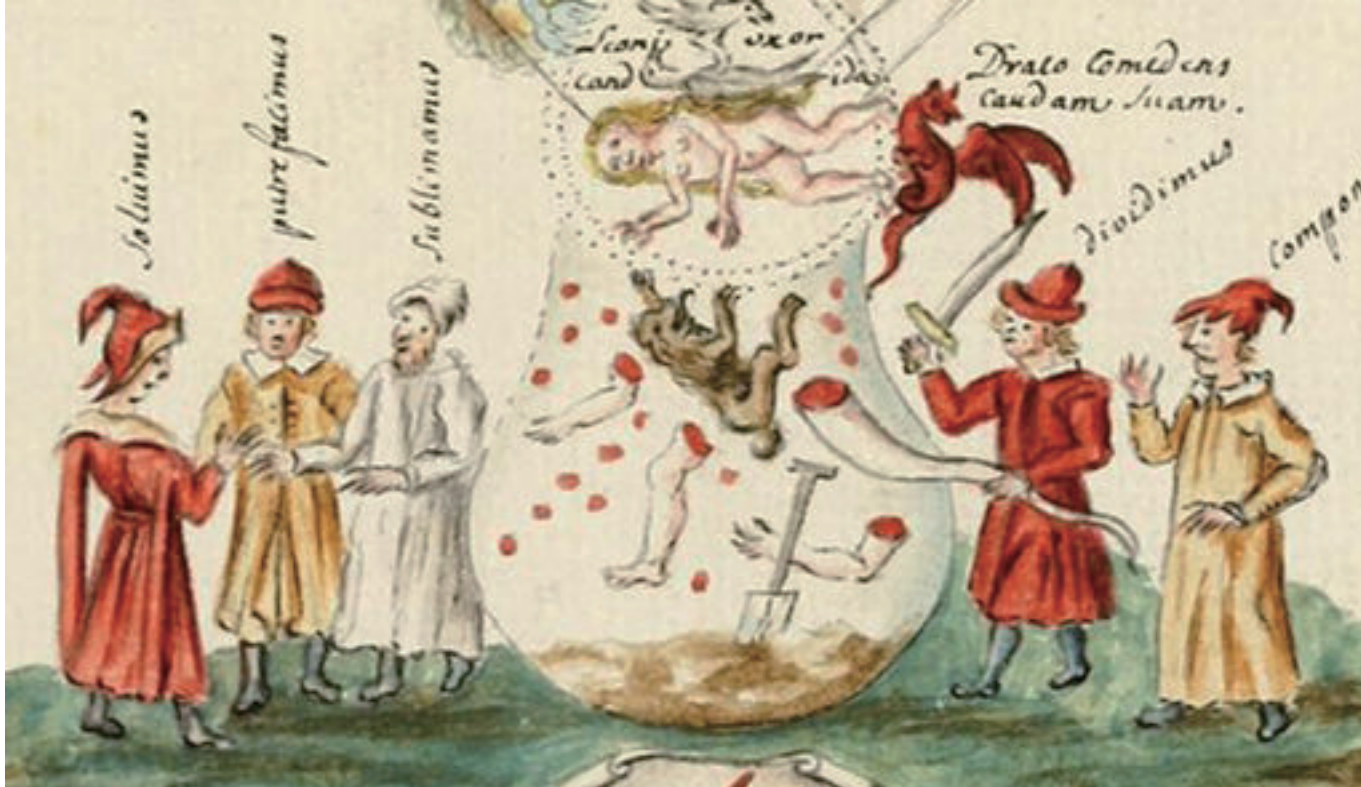 soluimus
putrefacimus
sublimamus
Leonis uxor
candida
Draco Comedens
caudam suam.
dividimus
compon